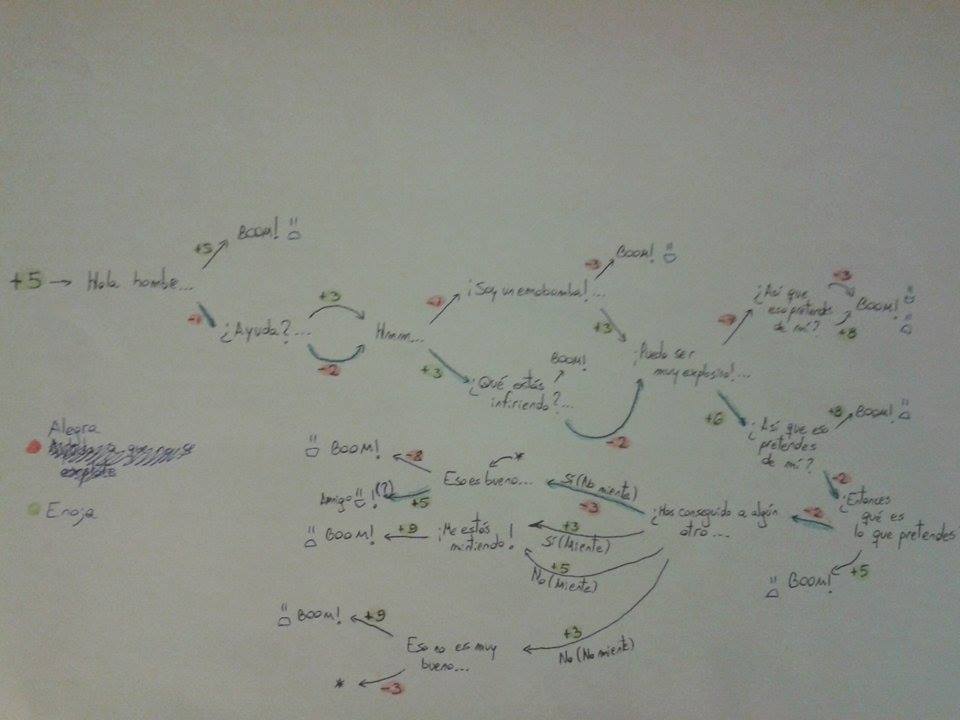 +5 → Hola hombe...
+5
BOOM!
-1
¿Ayuda?...
+3
-2
Hmm...
-7
¡Soy un emobomba!...
-3
BOOM!
+3
+3
¿Qué estás
infiriendo?...
BOOM!
-2
¡Puedo ser
muy explosivo!...
-7
¿Así que
eso pretendes
de mí?
-3
BOOM!
+8
+6
¿Así que eso
pretendes
de mí?
+8
BOOM!
-2
¿Entonces
qué es
lo que pretendes
+5
BOOM!
-2
¿Has conseguido a algún
otro...
Sí (No miente)
-3
Eso es bueno...
*
-8
BOOM!
+5
Amigo ! (?)
+3
Sí (Miente)
+5
No (Miente)
¡Me estás
mintiendo!
+9
BOOM!
+3
No (No miente)
Eso no es muy
bueno...
+9
BOOM!
-3
*
Alegra
Enoja